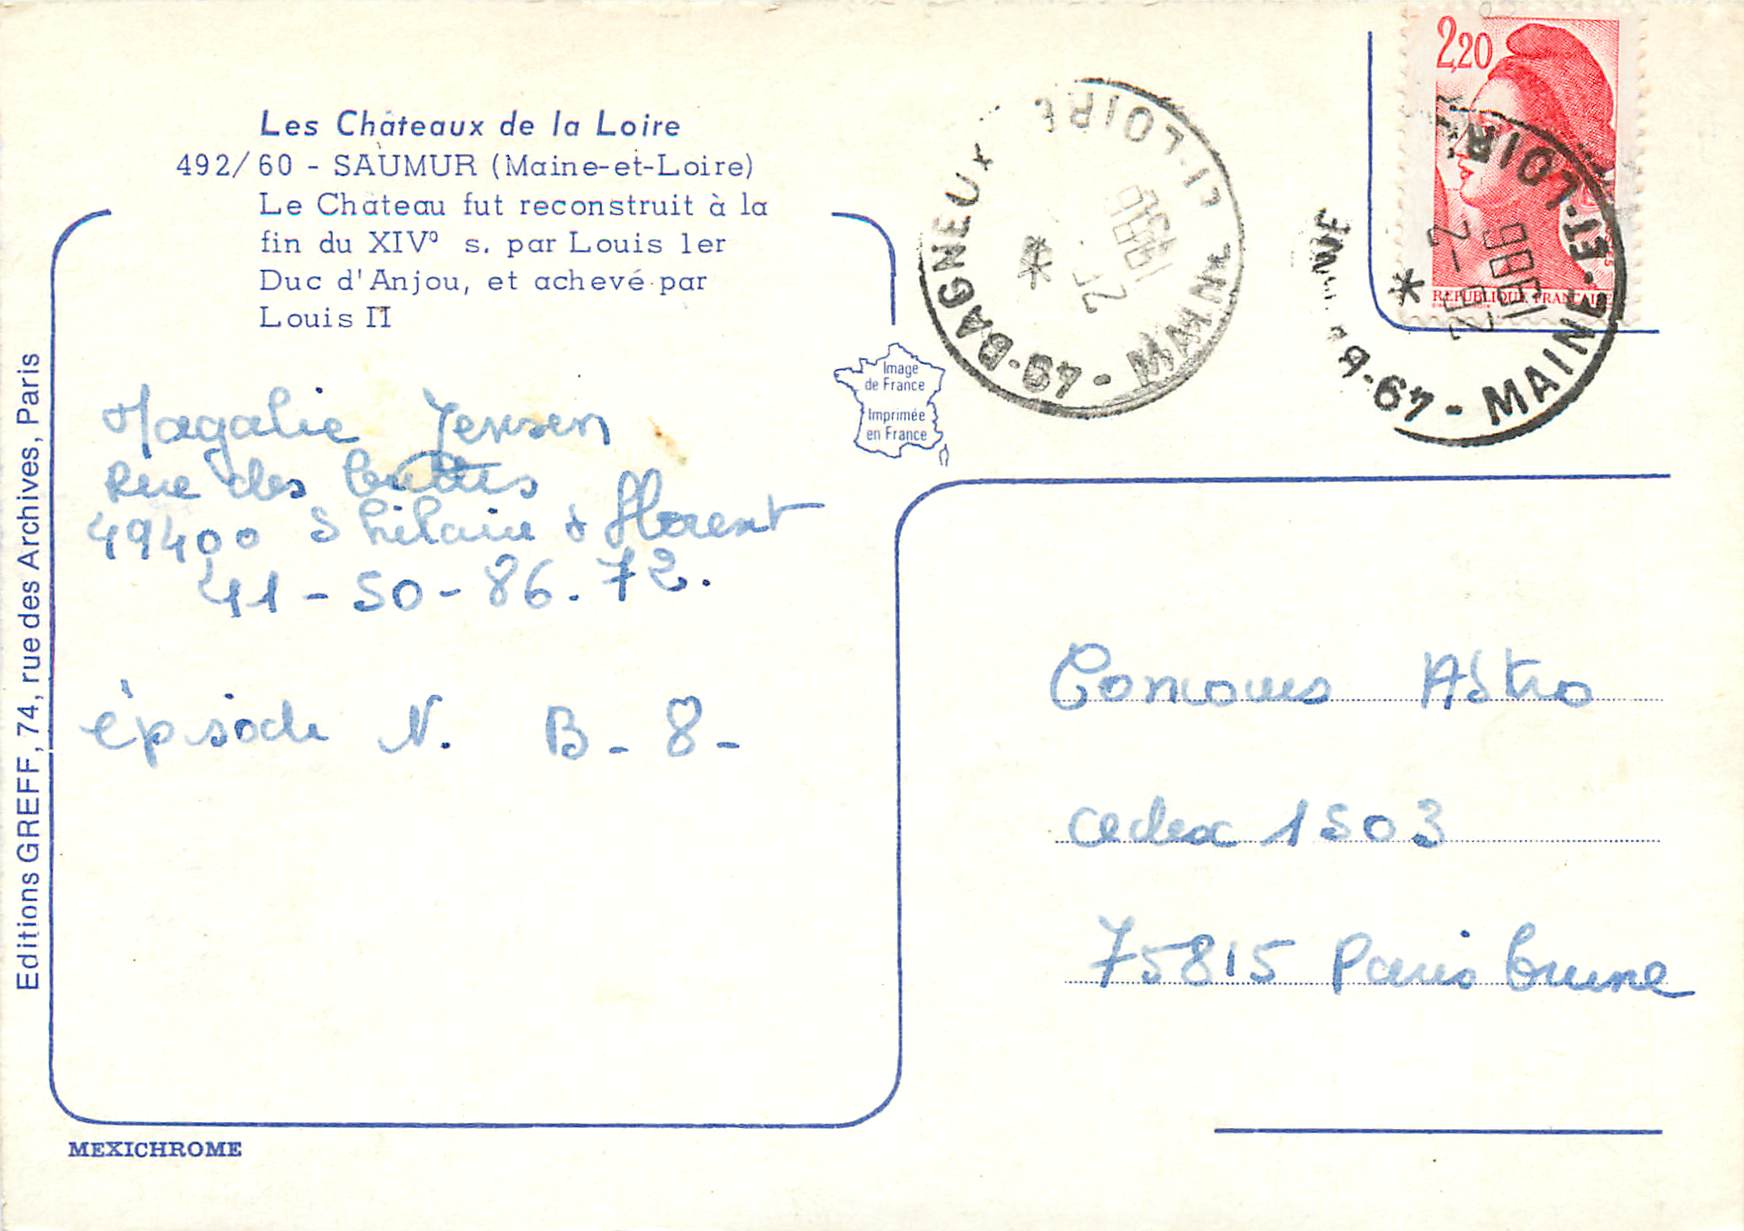 Les Châteaux de la Loire
492/60 - SAUMUR (Maine-et-Loire)
Le Château fut reconstruit à la
fin du XIVº s. par Louis 1er
Duc d'Anjou, et achevé par
Louis II
Editions GREFF, 74, rue des Archives, Paris
Image
de France
Imprimée
en France
Magalie Jensen
Rue des
49400 S hilaire St florent
41-50-86.72.
épisode N. B-8-
MEXICHROME
49-BAGNEUX
MAINE-ET-LOIRE
2,20
REPUBLIQUE FRANÇAISE
49-BA
MAINE-ET-LOIRE
1986
Concours AStro
cedex 1503
75815 Paris brune